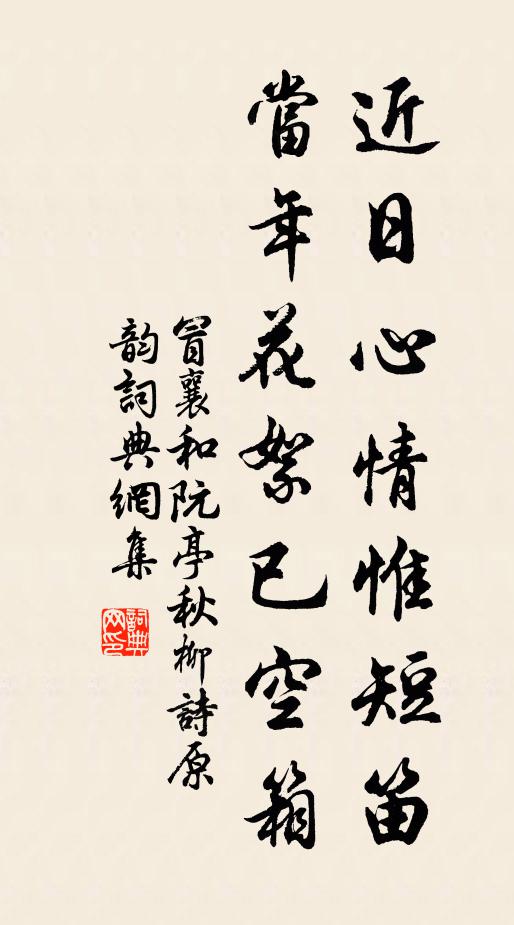 近日心情惟短笛
當年花絮已空箱
冒襄和阮亭秋柳詩原
韵詞典網集
詞典網印